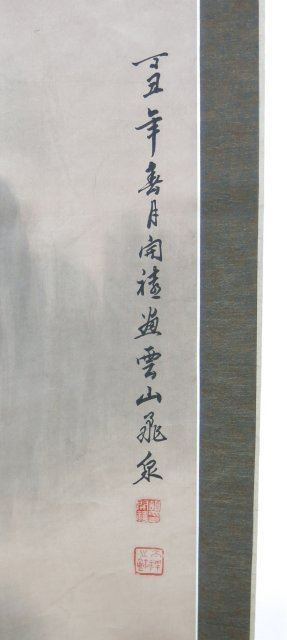 丁丑年春月開禧畫雲山飛泉